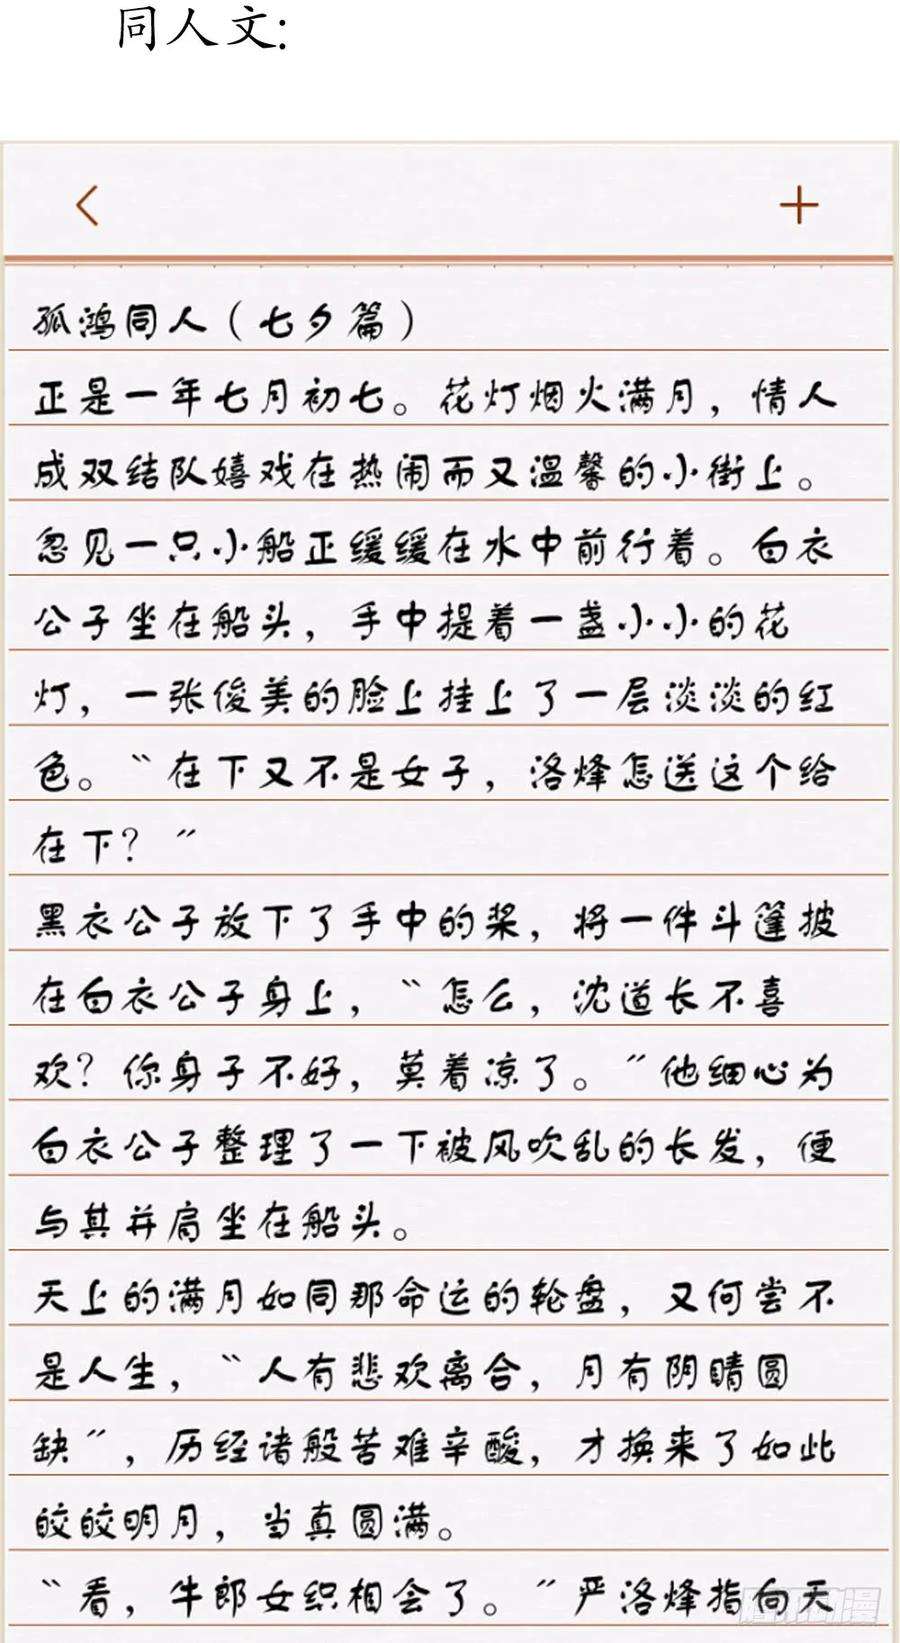 同人文:
孤鸿同人（七夕篇）
正是一年七月初七。花灯烟火满月，情人
成双结队嬉戏在热闹而又温馨的小街上。
忽见一只小船正缓缓在水中前行着。白衣
公子坐在船头，手中提着一盏小小的花
灯，一张俊美的脸上挂上了一层淡淡的红
色。“在下又不是女子，洛烽怎送这个给
在下？”
黑衣公子放下了手中的桨，将一件斗篷披
在白衣公子身上，“怎么，沈道长不喜
欢？你身子不好，莫着凉了。”他细心为
白衣公子整理了一下被风吹乱的长发，便
与其并肩坐在船头。
天上的满月如同那命运的轮盘，又何尝不
是人生，“人有悲欢离合，月有阴晴圆
缺”，历经诸般苦难辛酸，才换来了如此
皎皎明月，当真圆满。
“看，牛郎女织相会了。”严洛烽指向天